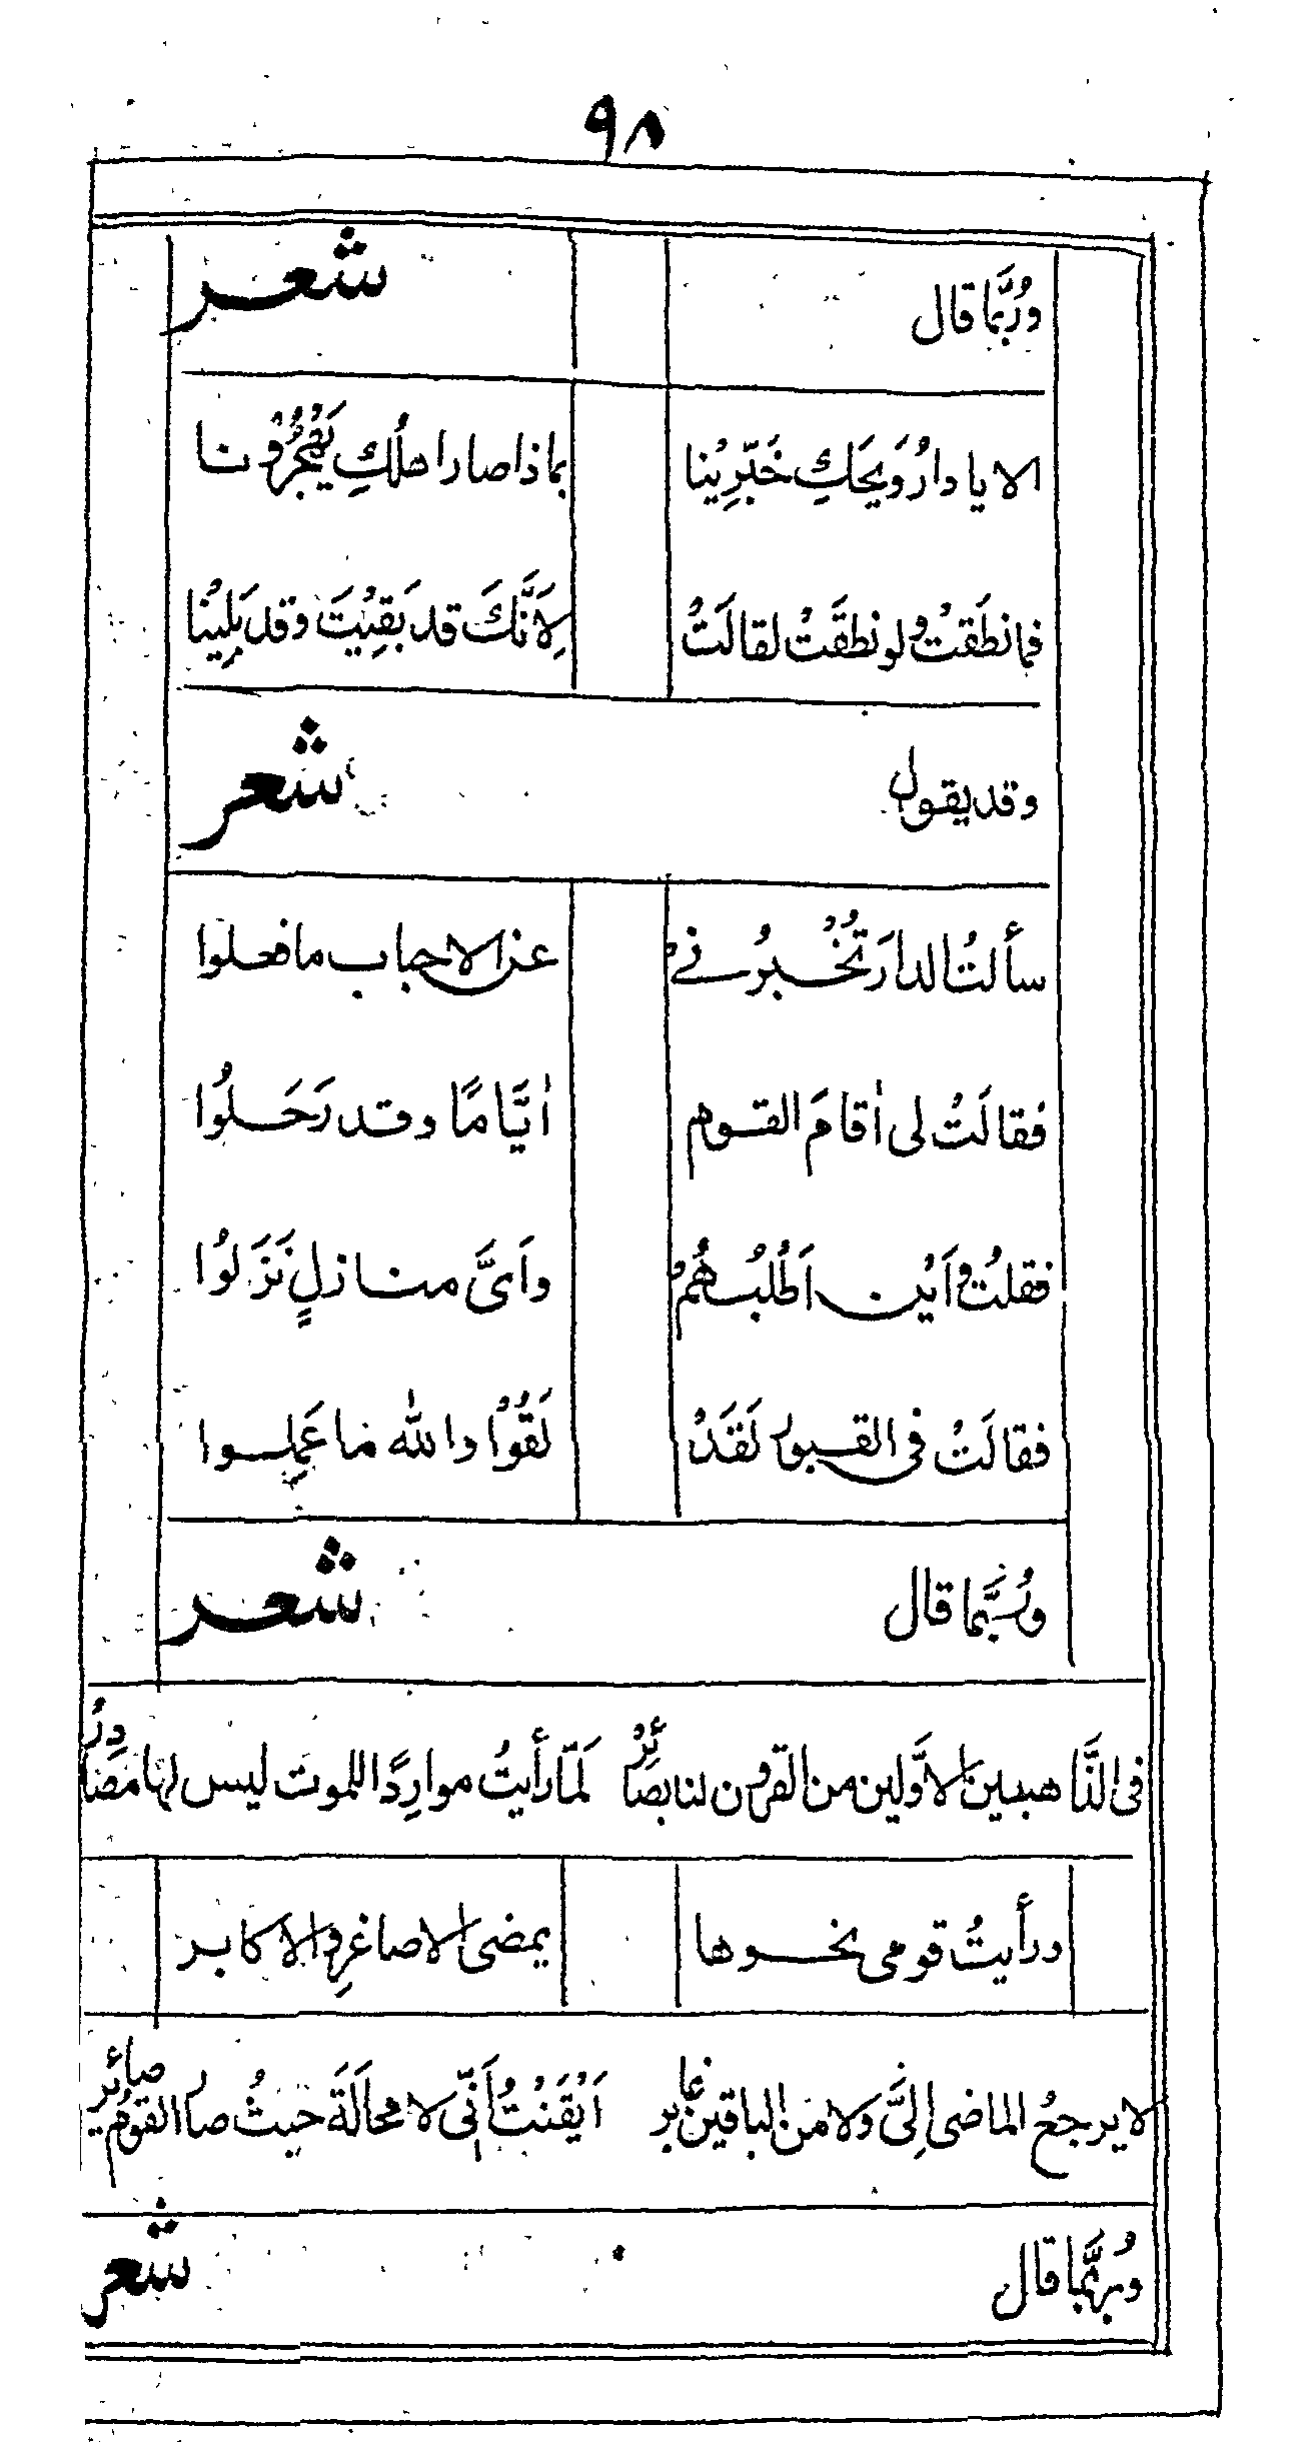 ٩٨
ورُبَّما قال شعر
الا يا دارُ وَيحَكِ خَبّرِيْنا بماذا صار اهلُكِ يَفْجُرُوْنا
فما نطَقتْ ولو نطقَتْ لقالَتْ لِاَنَّكَ قد بَقِيْتَ وقد بَلِيْنا
وقد يقول شعر
سألتُ الدارَ تُخْبِرُنى عن الاحباب ما فعلوا
فقالَتْ لى أقامَ القوم أيَّامًا وقد رَحَلُوا
فقلتُ وَاَيْن اَطْلُبُهُمْ واَىَّ منازلٍ نَزَلُوْا
فقالَتْ فى القبور لَقَدْ لَقُوْا والله ما عَمِلوا
ورُبَّما قال شعر
فى الذَّاهبين الاوَّلين من القرون لنا بصَائِرْ لَمّا رأيتُ موارِدًا للموت ليس لها مَصَادِرُ
ورأيتُ قومى نحوها يمضى الاصاغرِ والاكابر
لا يرجعُ الماضى اِلىَّ ولا من الباقين غابر اَيْقَنْتُ اَنِّى لا محالَةَ حيثُ صار القومُ صائر
ورُبَّما قال شعر